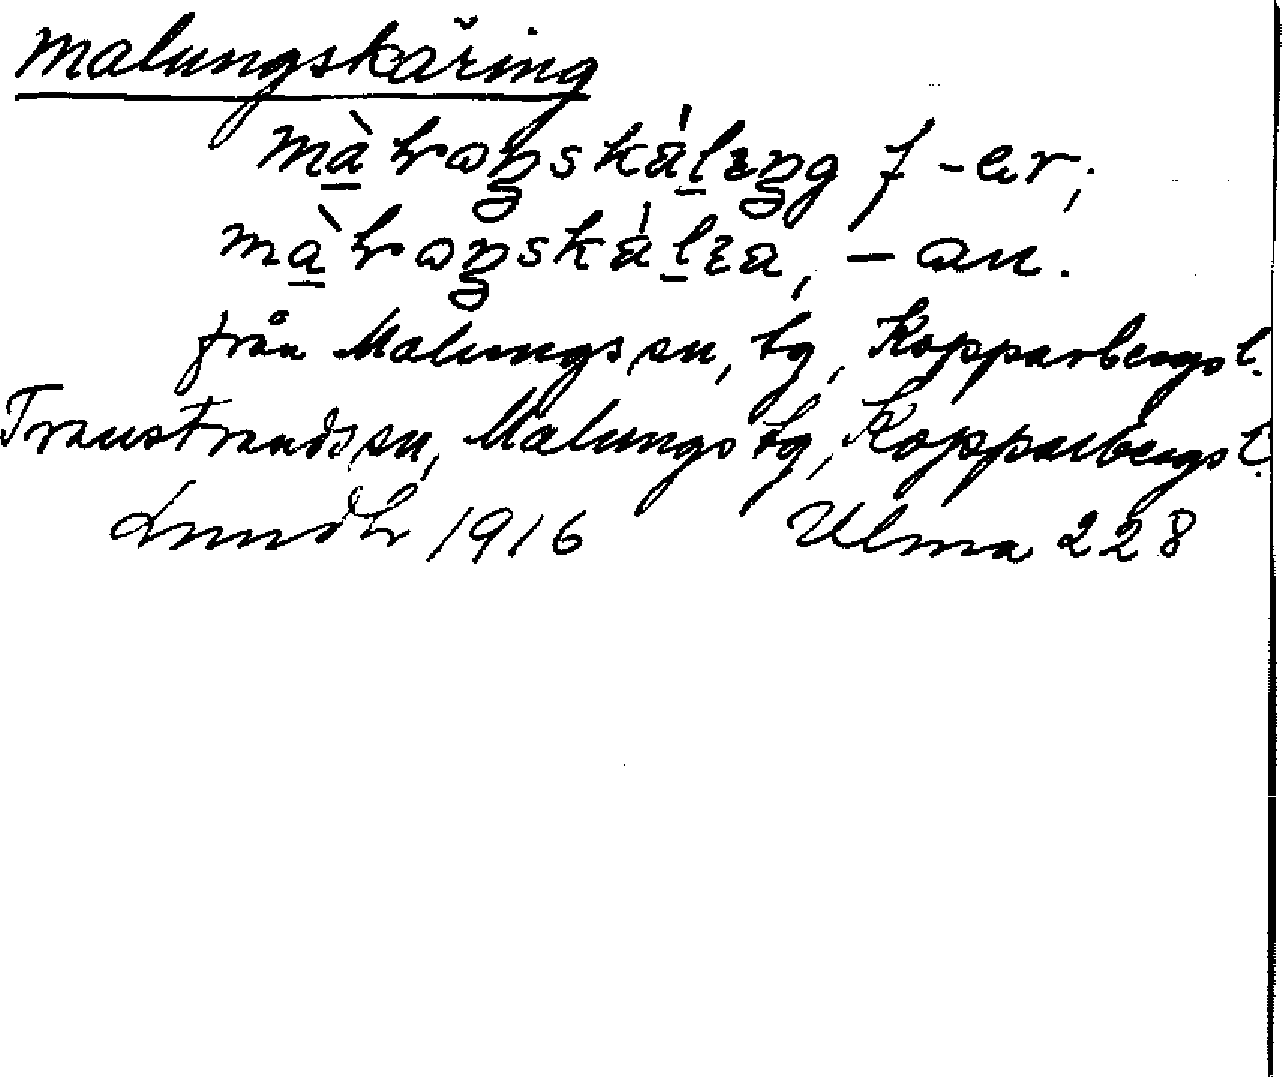 Malungskäring
f -er;
-an.
från Malungs sn, tg, Kopparbergs l.
Transtrands sn, Malungs tg, Kopparbergs l.
Lundh 1916 Ulma 228